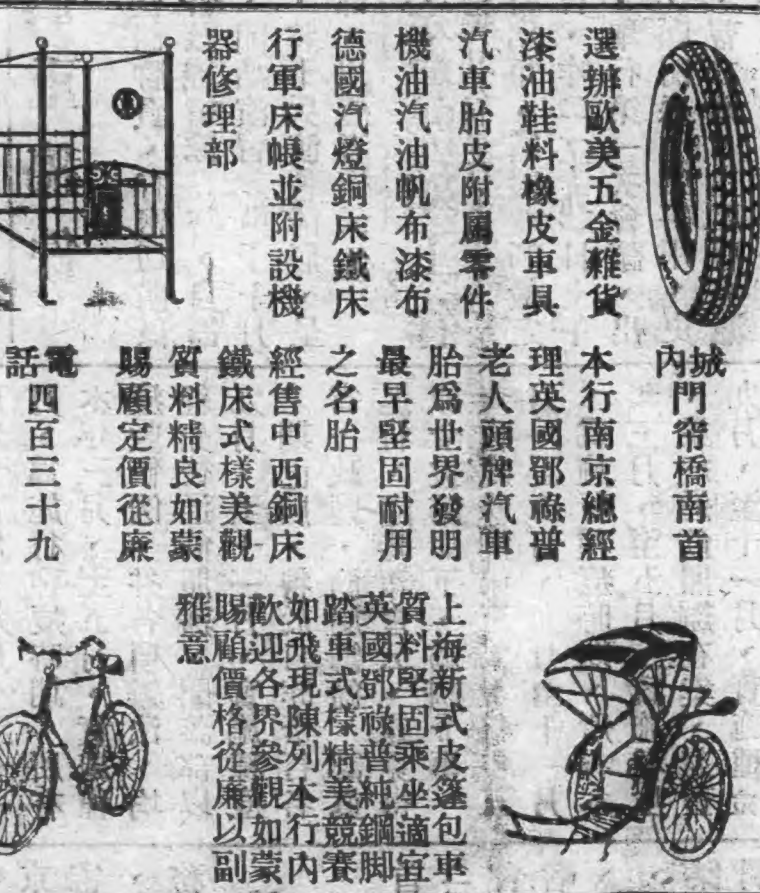 選辦歐美五金雜貨
漆油鞋料橡皮車具
汽車胎皮附屬零件
機油汽油帆布漆布
德國汽燈銅床鐵床
行軍床帳並附設機
器修理部
城內門帘橋南首
本行南京總經
理英國鄧祿普
老人頭牌汽車
胎爲世界發明
最早堅固耐用
之名胎
經售中西銅床
鐵床式樣美觀
質料精良如蒙
賜顧定價從廉
電話四百三十九
上海新式皮篷包車
質料堅固乘坐適宜
英國鄧祿普純鋼脚
踏車式樣精美競賽
如飛現陳列本行內
歡迎各界參觀如蒙
賜顧價格從廉以副
雅意